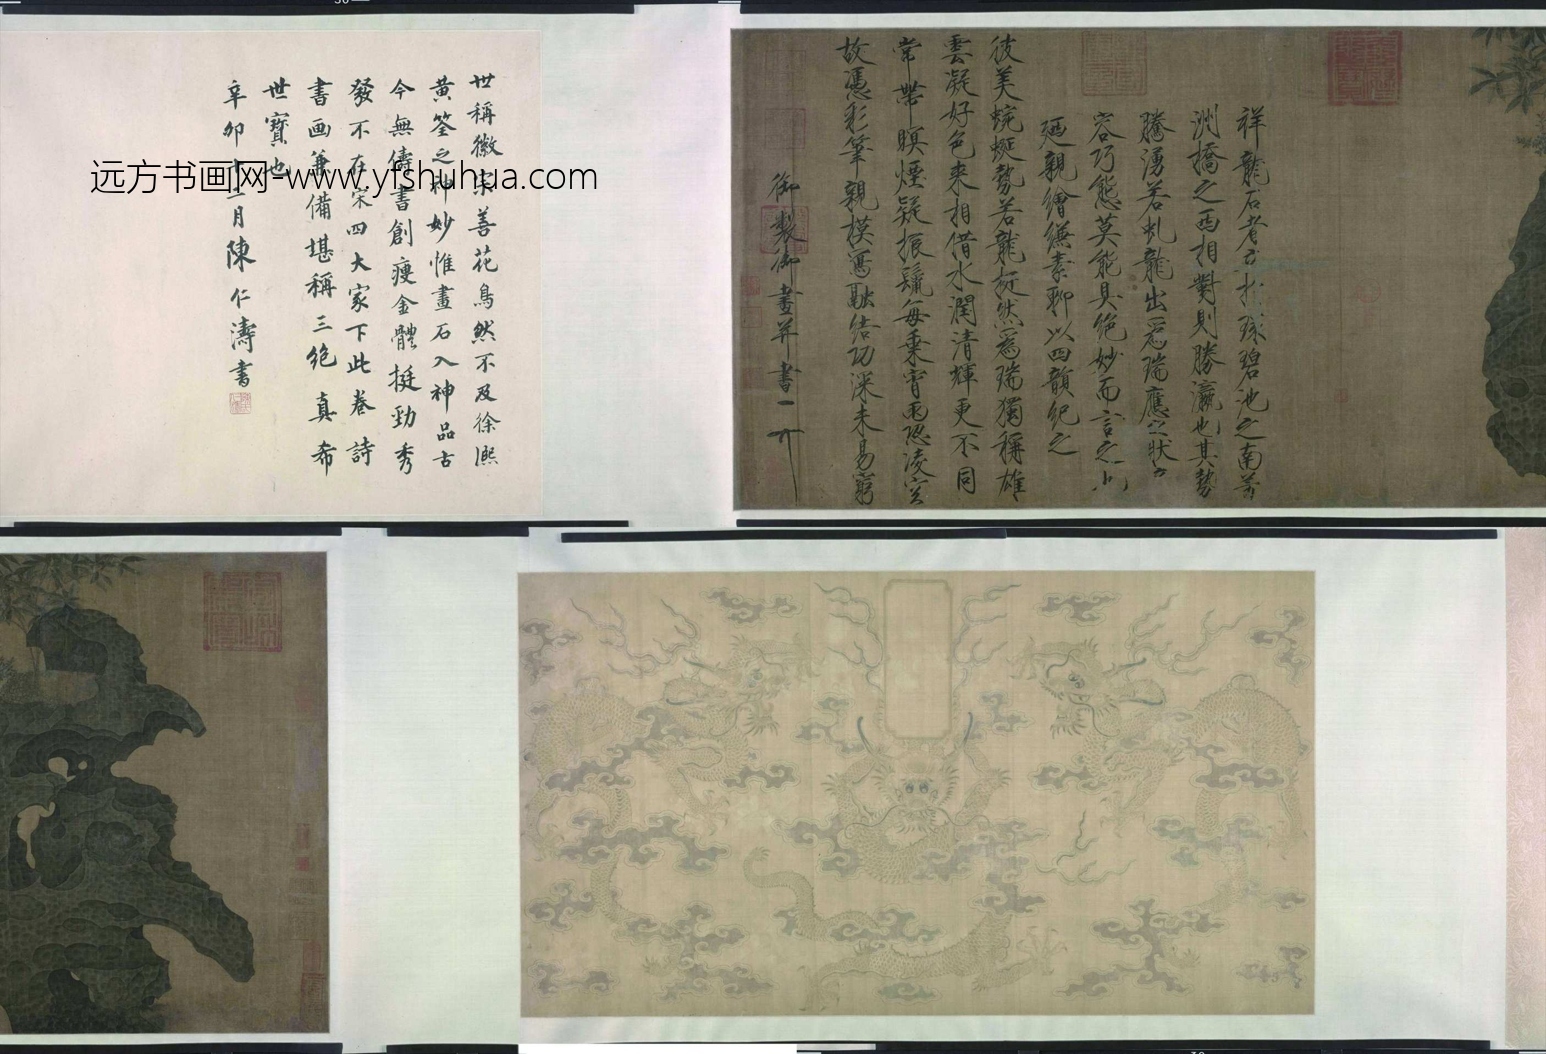 世稱徽宗善花鳥然不及徐熙
黃筌之神妙惟畫石入神品古
今無儔書創瘦金體挺勁秀
發不在宋四大家下此卷詩
書画兼備堪稱三絕真希
世寶也
辛卯十二月陳仁濤書
远方书画网-www.yfshuhua.com
祥龍石者立於環碧池之南芳
洲橋之西相對則勝瀛也其勢
騰湧若虬龍出為瑞應之狀奇
容巧態莫能具絕妙而言之也
廼親繪縑素聊以四韻紀之
彼美蜿蜒勢若龍挺然為瑞獨稱雄
雲凝好色來相借水潤清輝更不同
常帶暝煙疑振鬣每乘宵雨恐凌空
故憑彩筆親模寫融結功深未易窮
御製御畫并書